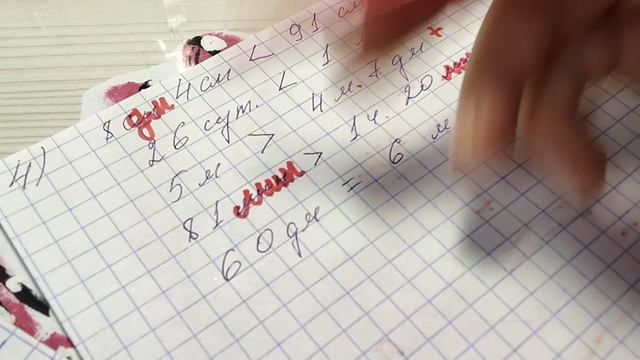 4)
8 дм 4 см < 91 см
26 сут. < 1
5 м > 4 м. 7 дм +
81 мин > 1 ч. 20 мин
60 дм = 6 м